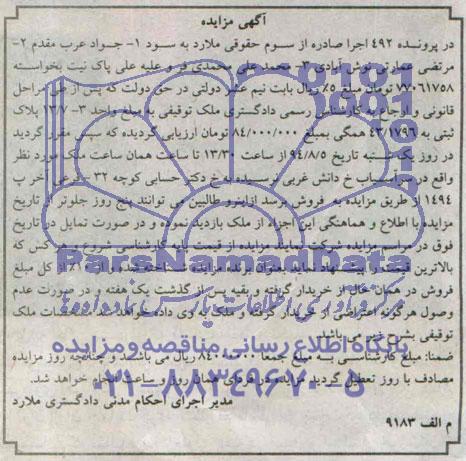 آگهی مزایده
در پرونده ۴۹۲ اجرا صادره از سوم حقوقی ملارد به سود ۱- جواد عرب مقدم ۲-
مرتضی عمارتی نوش آبادی ۳- محمد علی محمدی فر و علیه علی پاک نیت بخواسته
۷۷۰۶۱۷۵۸ تومان مبلغ ۵٪ ریال بابت نیم عشر دولتی در حق دولت که پس از طی مراحل
قانونی و ارجاع به کارشناس رسمی دادگستری ملک توقیفی به مبلغ واحد ۳- ۱۳/۷ پلاک
ثبتی به ۴۳/۱۷۹۶ همگی بمبلغ ۸۴/۰۰۰/۰۰۰ تومان ارزیابی گردیده که سپس مقرر گردید
در روز یک شنبه تاریخ ۹۴/۸/۵ از ساعت ۱۳/۳۰ تا ساعت همان ساعت ملک مورد نظر
واقع در سرآسیاب خ دانش غربی نرسیده به خ دکتر حسابی کوچه ۳۲- فرعی آخر پ
۱۴۹۴ از طریق مزایده به فروش برسد ازاینرو طالبین می توانند پنج روز جلوتر از تاریخ
مزایده با اطلاع و هماهنگی این اجراء از ملک بازدید نموده و در صورت تمایل در تاریخ
فوق در مراسم مزایده شرکت نمایند مزایده از قیمت پایه کارشناسی شروع و هر کس که
بالاترین قیمت را پیشنهاد نماید بعنوان برنده مزایده شناخته شده و از ۱۰٪ از کل مبلغ
فروش در همان حال از خریدار گرفته و بقیه پس از گذشت یک هفته و در صورت عدم
وصول هرگونه اعتراضی از خریدار گرفته و ملک به وی داده خواهد شد مشخصات ملک
توقیفی بشرح می باشد
ضمنا: مبلغ کارشناسی به مبلغ بجمعا ۸۴۰۰۰۰۰۰۰ ریال می باشد و چنانچه روز مزایده
مصادف با روز تعطیل گردید مزایده در فردای همان روز و ساعت انجام خواهد شد.
مدیر اجرای احکام مدنی دادگستری ملارد
م الف ۹۱۸۳
ParsNamadData
مرکز فرآوری اطلاعات پارس نماد داده ها
پایگاه اطلاع رسانی مناقصه و مزایده
۰۲۱-۸۸۳۴۹۶۷۰-۵